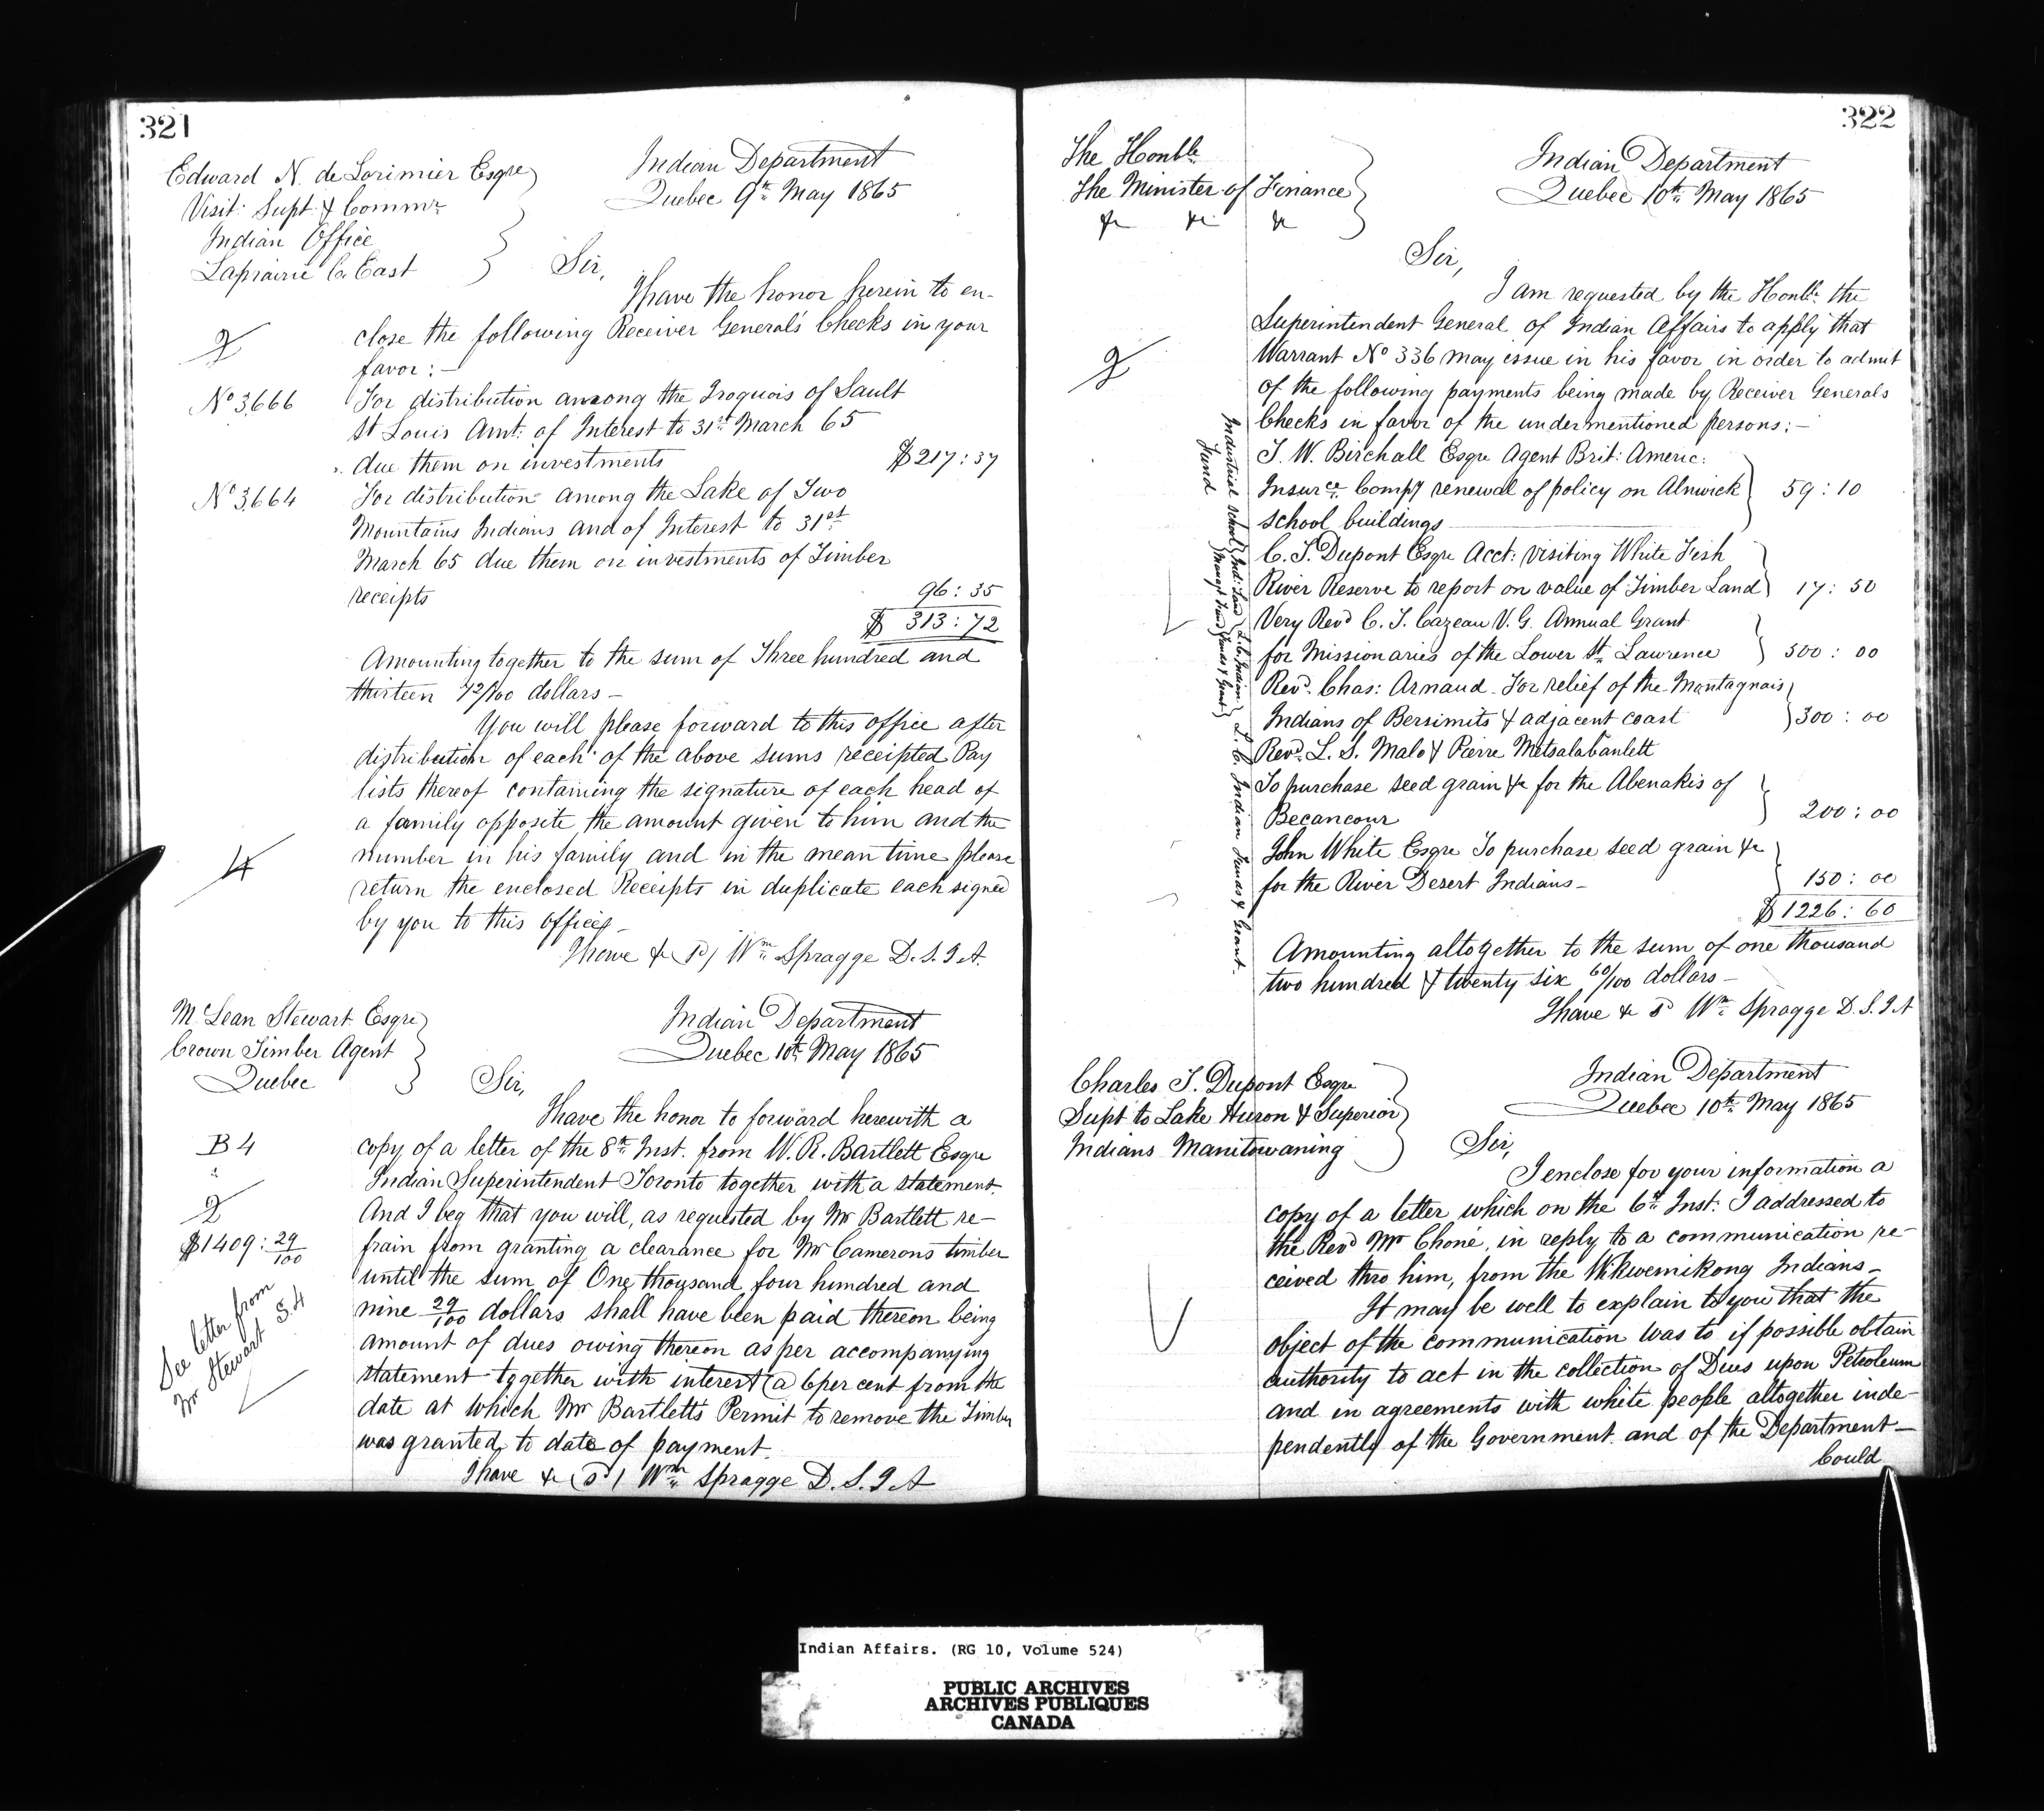 321
Edward N. de Lorimier Esqre
Visit: Supt & Commr
Indian Office
Laprairie C. East
Indian Department
Quebec 9th May 1865
Sir,
I have the honor herein to en-
close the following Receiver General's Checks in your
favor:-
2
No 3666
For distribution among the Iroquois of Sault
St Louis Amt: of Interest to 31st March 65
due them on investments $217:37
No 3664
For distribution among the Lake of Two
Mountains Indians and of Interest to 31st
March 65 due them on investments of Timber
receipts 96:35
$ 313:72
Amounting together to the sum of Three hundred and
thirteen 72/100 dollars-
You will please forward to this office after
distribution of each of the above sums receipted Pay
lists thereof containing the signature of each head of
a family opposite the amount given to him and the
number in his family and in the mean time please
return the enclosed Receipts in duplicate each signed
by you to this office
4
I have & (Sd) Wm Spragge D.S.I.A.
McLean Stewart Esqre
Crown Timber Agent
Quebec
Indian Department
Quebec 10th May 1865
Sir,
I have the honor to forward herewith a
B 4
copy of a letter of the 8th Inst. from W. R. Bartlett Esqre
Indian Superintendent Toronto together with a statement.
2
And I beg that you will, as requested by Mr Bartlett re-
$1409:29/100
frain from granting a clearance for Mr Camerons timber
until the sum of One thousand four hundred and
nine 29/100 dollars shall have been paid thereon being
amount of dues owing thereon as per accompanying
statement together with interest @ 6 per cent from the
date at which Mr Bartletts Permit to remove the Timber
was granted, to date of payment.
See letter from
Mr Stewart S.4
I have & (Sd) Wm Spragge D.S.I.A
322
The Honble
The Minister of Finance
& & &
Indian Department
Quebec 10th May 1865
Sir,
I am requested by the Honble the
Superintendent General of Indian Affairs to apply that
Warrant No 336 may issue in his favor in order to admit
of the following payments being made by Receiver Generals
Checks in favor of the undermentioned persons:-
2
Industrial School Fund
Ind: Land Managt Fund
L.C. Indian Funds & Grant
L. C. Indian Funds & Grant.
T. W. Birchall Esqre Agent Brit: Americ:
Insurce Compy renewal of policy on Alnwick 59:10
school buildings
C. T. Dupont Esqre Acct: visiting White Fish
River Reserve to report on value of Timber Land 17:50
Very Revd C. F. Cazeau V.G. Annual Grant
for Missionaries of the Lower St. Lawrence 500:00
Revd. Chas: Arnaud For relief of the Montagnais
Indians of Bersimits & adjacent coast 300:00
Revd. L. S. Malo & Pierre Metsalabanlett
To purchase seed grain &c for the Abenakis of
Becancour 200:00
John White Esqre To purchase seed grain &c
for the River Desert Indians- 150:00
$1226:60
Amounting altogether to the sum of one thousand
two hundred & twenty six 60/100 dollars-
I have & Sd Wm Spragge D.S.I.A
Charles T. Dupont Esqre
Supt to Lake Huron & Superior
Indians Manitowaning
Indian Department
Quebec 10th May 1865
Sir,
I enclose for your information a
copy of a letter which on the 6th Inst: I addressed to
the Revd Mr Choné, in reply to a communication re-
ceived thro him, from the Wikwemikong Indians-
It may be well to explain to you that the
object of the communication was to if possible obtain
authority to act in the collection of Dues upon Petroleum
and in agreements with white people altogether inde-
pendently of the Government and of the Department-
Could
Indian Affairs. (RG 10, Volume 524)
PUBLIC ARCHIVES
ARCHIVES PUBLIQUES
CANADA